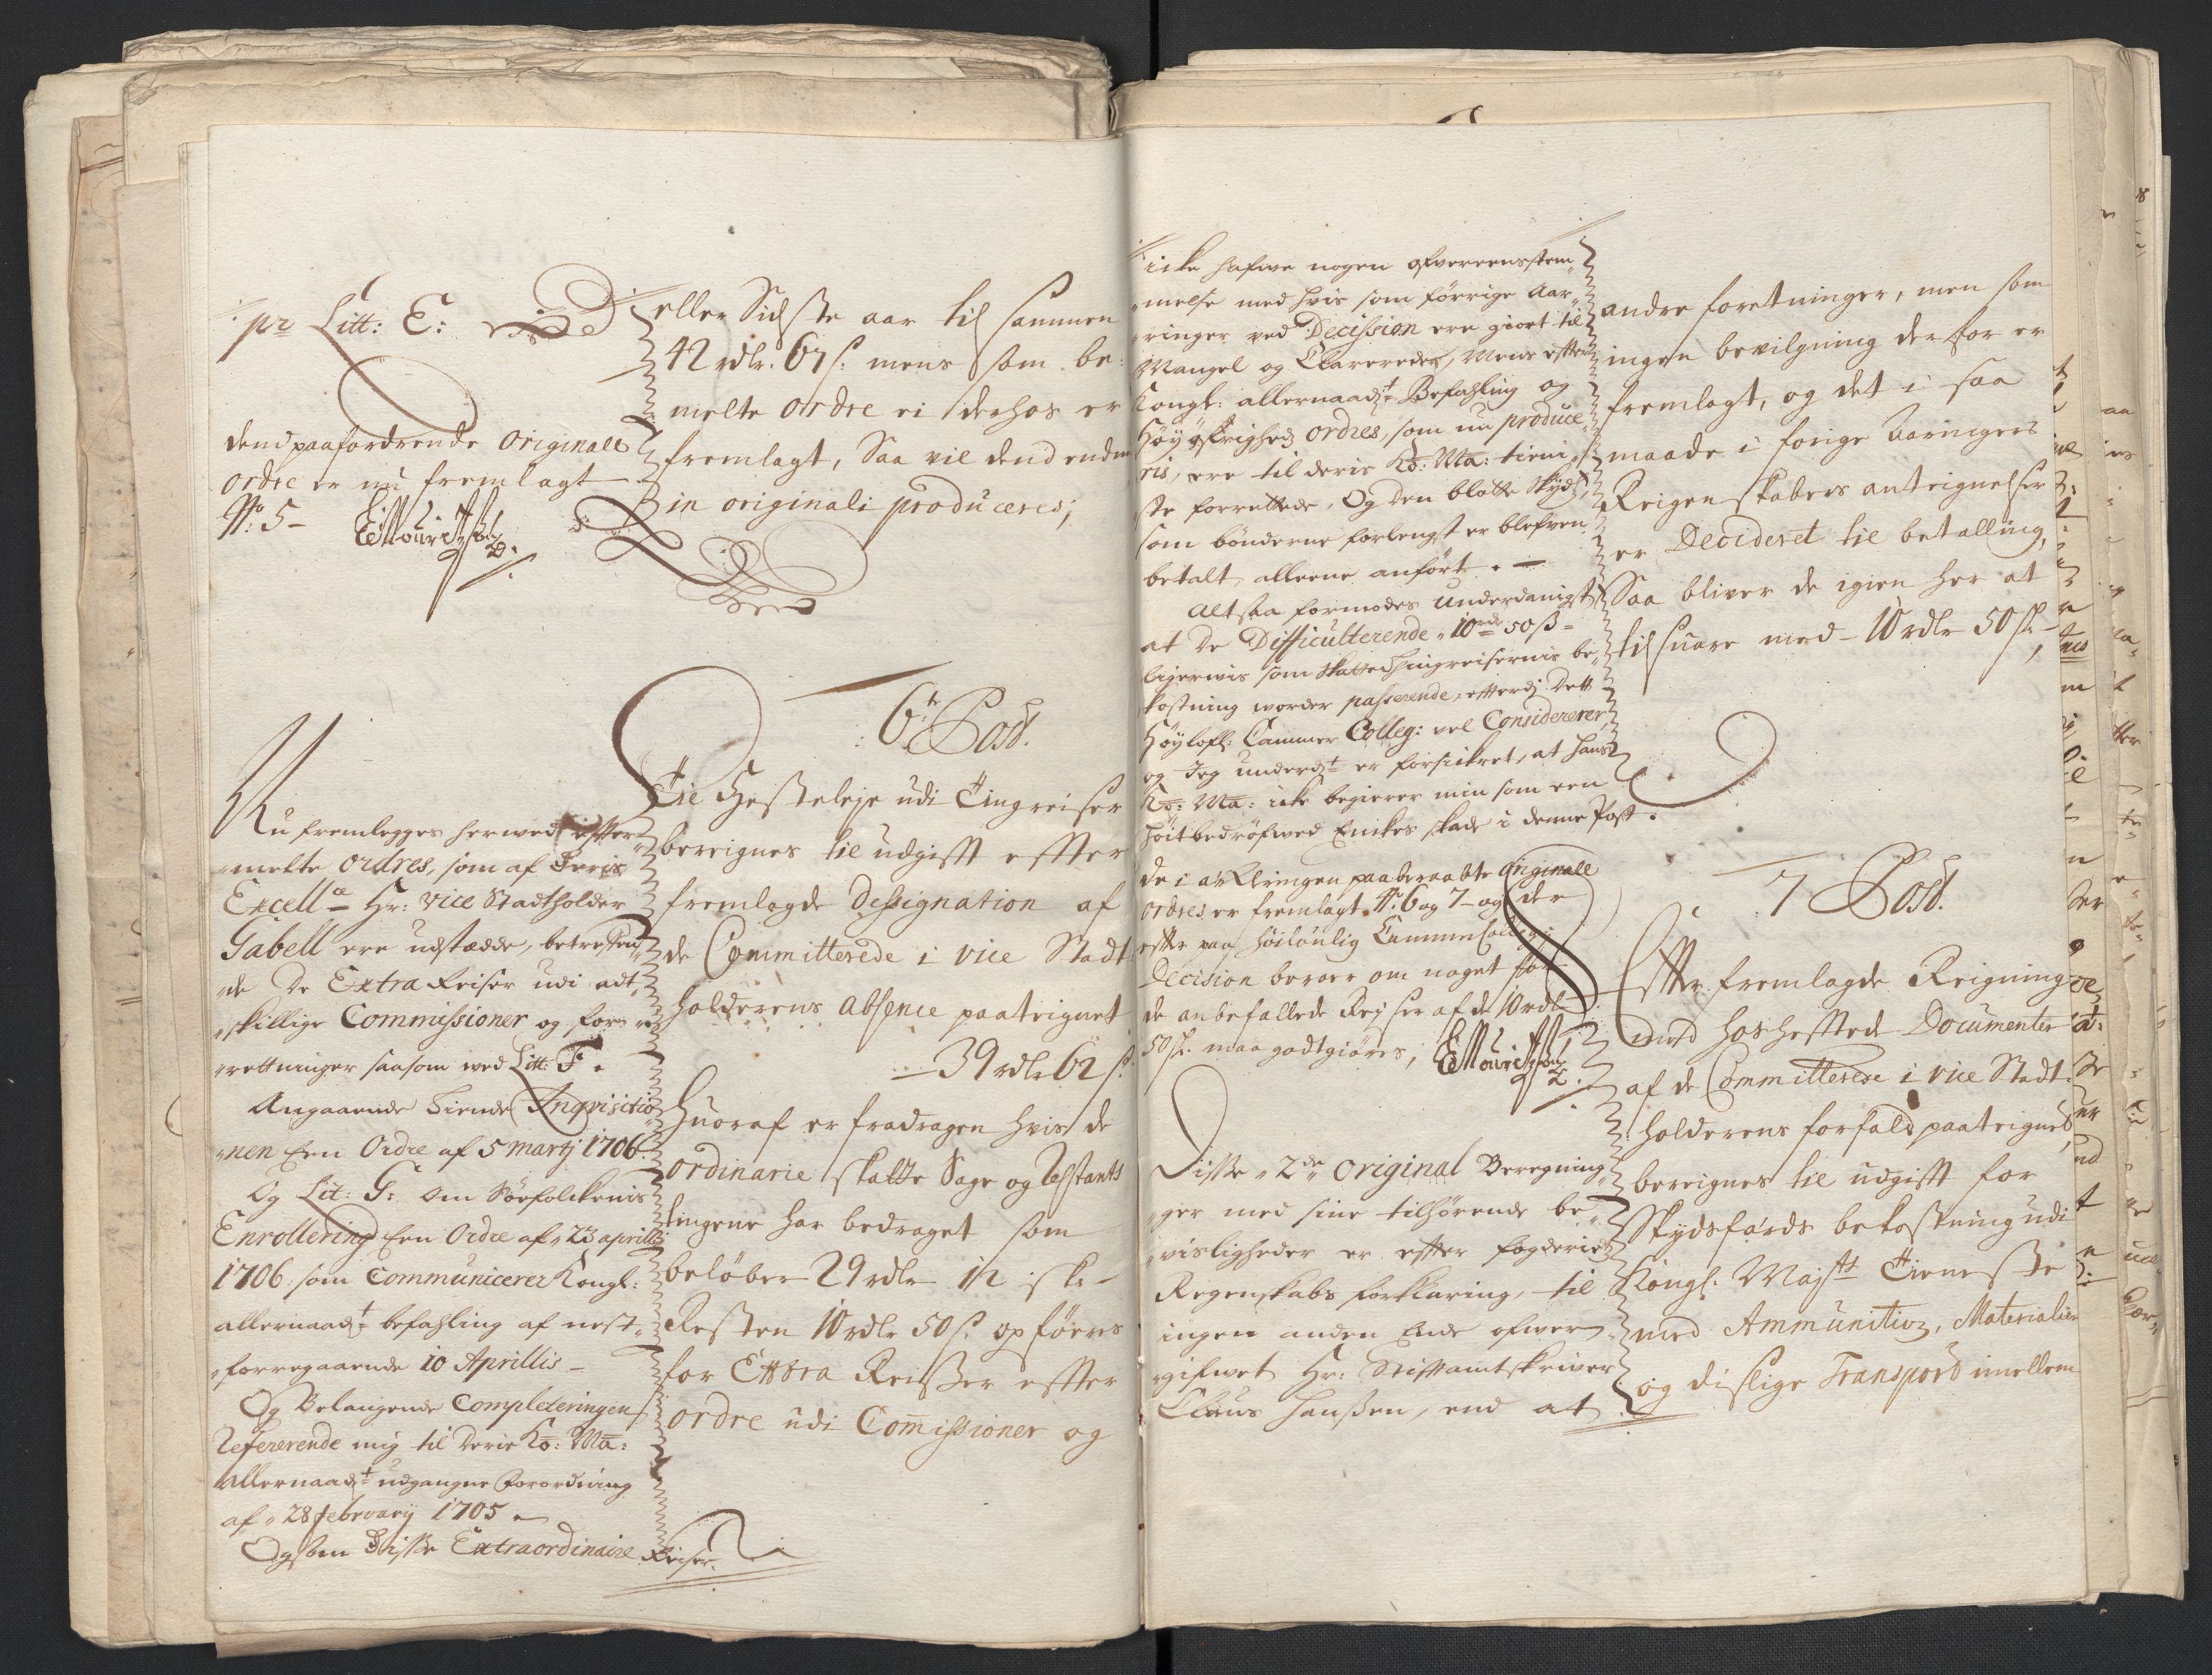 pr Litt: E:
dend paafordrende Originale
ordre er nu fremlagt
N:o 5 -
EMouritzßøn
eller Sidste aar til sammen
42 rdlr. 67 s: mens som be:
melte ordre ei derhos er
fremlagt, Saa vil dend endnu
in originali produceres;
6te Post.
Nu fremlegges herwed efter-
melte ordres, som af Deris
Excellce Hr: Vice Stadtholder
Gabell ere udstædde, betreffen-
de De Extra Reiser udi adt-
skillige Commissioner og for-
rettninger saasom wed Litt: F.
Angaaende Tiende Inqvisitio-
nen Een Ordre af 5 Martj 1706
Og Lit: G: Om Søefolckenis
Enrollering Een Ordre af 23 aprill
1706: som Communicerer Kongl:
allernaadst befahling af nest-
forregaaende 10 Aprillis -
Og Belangende Completeringen
Refererende mig til Deris Ko: Ma:
Allernaadst udgangne Forordning
af 28 februarij 1705
Og som Disse Extraordinaire
Reiser
Tie Hesteleje udi Tingreiser
bereignes til udgifft effter
fremlagde Designation af
de Committerede i vice Stadt-
holderens absence paateignet
- 39 rdlr 62 s:
Huoraf er fradragen hvis de
ordinarie skatte Sage og Restants
tingene har bedraget som
beløber 29 rdlr 12 sk: -
Resten 10 rdlr 50 s: opføres
for Extra Reißer effter
ordre udi Commissioner og
icke hafwe nogen ofvereensstem-
melse med hvis som førrige Aar-
ringer ved Decission ere giort til
Mangel og Clareredes, Mens effter
Kongl: allernaadst Befahling og
Høy øfrigheds ordres, som nu produce-
ris, ere til deris Ko: Ma: tieni-
ste forrettede, Og den blotte skyds
som bønderne forlengst er blefven
betalt, alleene anført. -
Altsaa formodes underdanigst
at De Difficulterende 10 rdr 50 ß =
ligerwis som skatte Tingreisernis be-
kostning worder passerende, effterdj Dett
Høylofl: Cammer Colleg: vel Considererer,
og Jeg underdst er forsickret, at Hans
Ko: Ma: icke begierer min som een
høitbedrøfwed Enckes skade i denne Post.
de i erklæringen paaberaabte Originale
ordres er fremlagt N:o 6 og 7 - og der
effter paa høilønlig Cammer Collegij
Decision beroer om noget for
de anbefallede Rejser af de 10 rdlr
50 sk: maa godtgiøres,
EMouritzßøn
Disse 2de Original Beregning-
ger med sine tilhørende be-
visligheder er effter fogderiets
Regenskabs forklaring, til
ingen anden Ende ofwer-
gifwet Hr: Stiftamtskriver
Claus Hanßen, end at
andre foretninger, men som
ingen bevilgning der for er
fremlagt, og det i saa
maade i forige Aaringers
Reigenskabers antegnelser
er Decideret til betalling,
Saa bliver de igien her at
tilsuare med - 10 rdlr 50 sk -
7 Post.
Effter fremlagde Reigning
med hoshefftede Documenter
af de Committerede i vice Stadt-
holderens forfald paateignet,
bereignes til udgifft for
Skydsfærds bekostning udi
Kongl: Majts Tieneste
med Ammunition, Materialier
og dislige Transport imellem